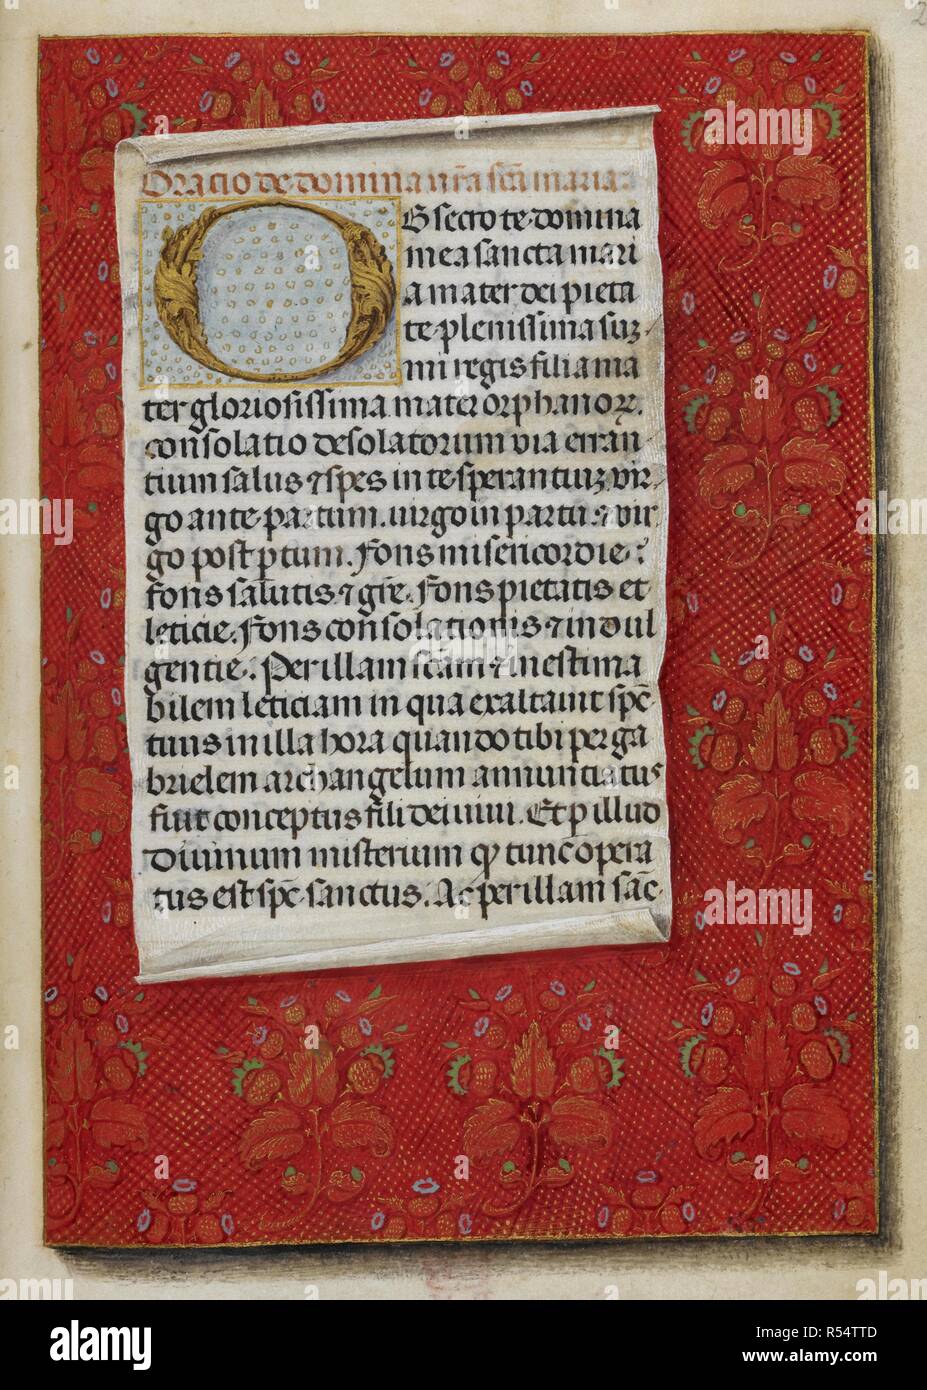 Oracio de domina nr̃a sctã maria:
OBsecro te domina
mea sancta mari
a mater dei pieta
te plenissima sum
mi regis filia ma
ter gloriosissima mater orphanoꝝ.
consolatio desolatorum via erran
tium salus ⁊ spes in te sperantiuꝫ vir
go ante partum. virgo in partu. ⁊ vir
go post ptum. Fons misericordie:
fons salutis ⁊ grẽ. Fons pietatis et
leticie. Fons consolationis ⁊ indul
gentie. Per illam scãm ⁊ inestima
bilem leticiam in qua exaltauit spẽ
tuus in illa hora quando tibi per ga
brielem archangelum annunciatus
fiut conceptus fili dei uiui. Et p illud
Diuinum misterium qđ tunc opera
tus est spẽ sanctus. Ac per illam sãc
2
alamy
alamy
R54TTD
www.alamy.com